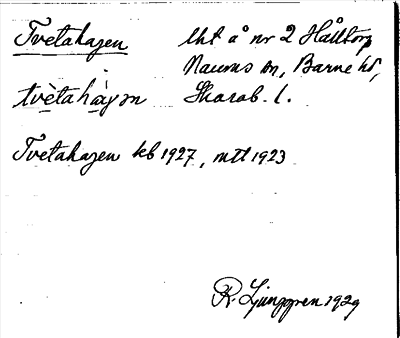 Tvetahagen lht å nr 2 Hålltorp
Naums sn, Barne hd,
tvètahàγən Skarab. l.
Tvetahagen kb 1927, mtl 1923
R. Ljunggren 1929